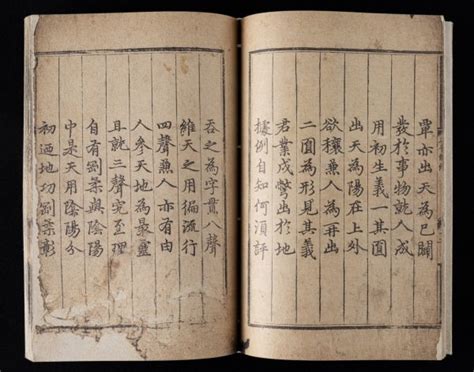 覃亦出天為已闢
發於事物就人成
用初生義一其圓
出天為陽在上外
欲穰兼人為再出
二圓為形見其義
君業戌彆出於地
據例自知何須評
吞之為字貫八聲
維天之用徧流行
四聲兼人亦有由
人參天地為最靈
且就三聲究至理
自有剛柔與陰陽
中是天用陰陽分
初迺地功剛柔彰